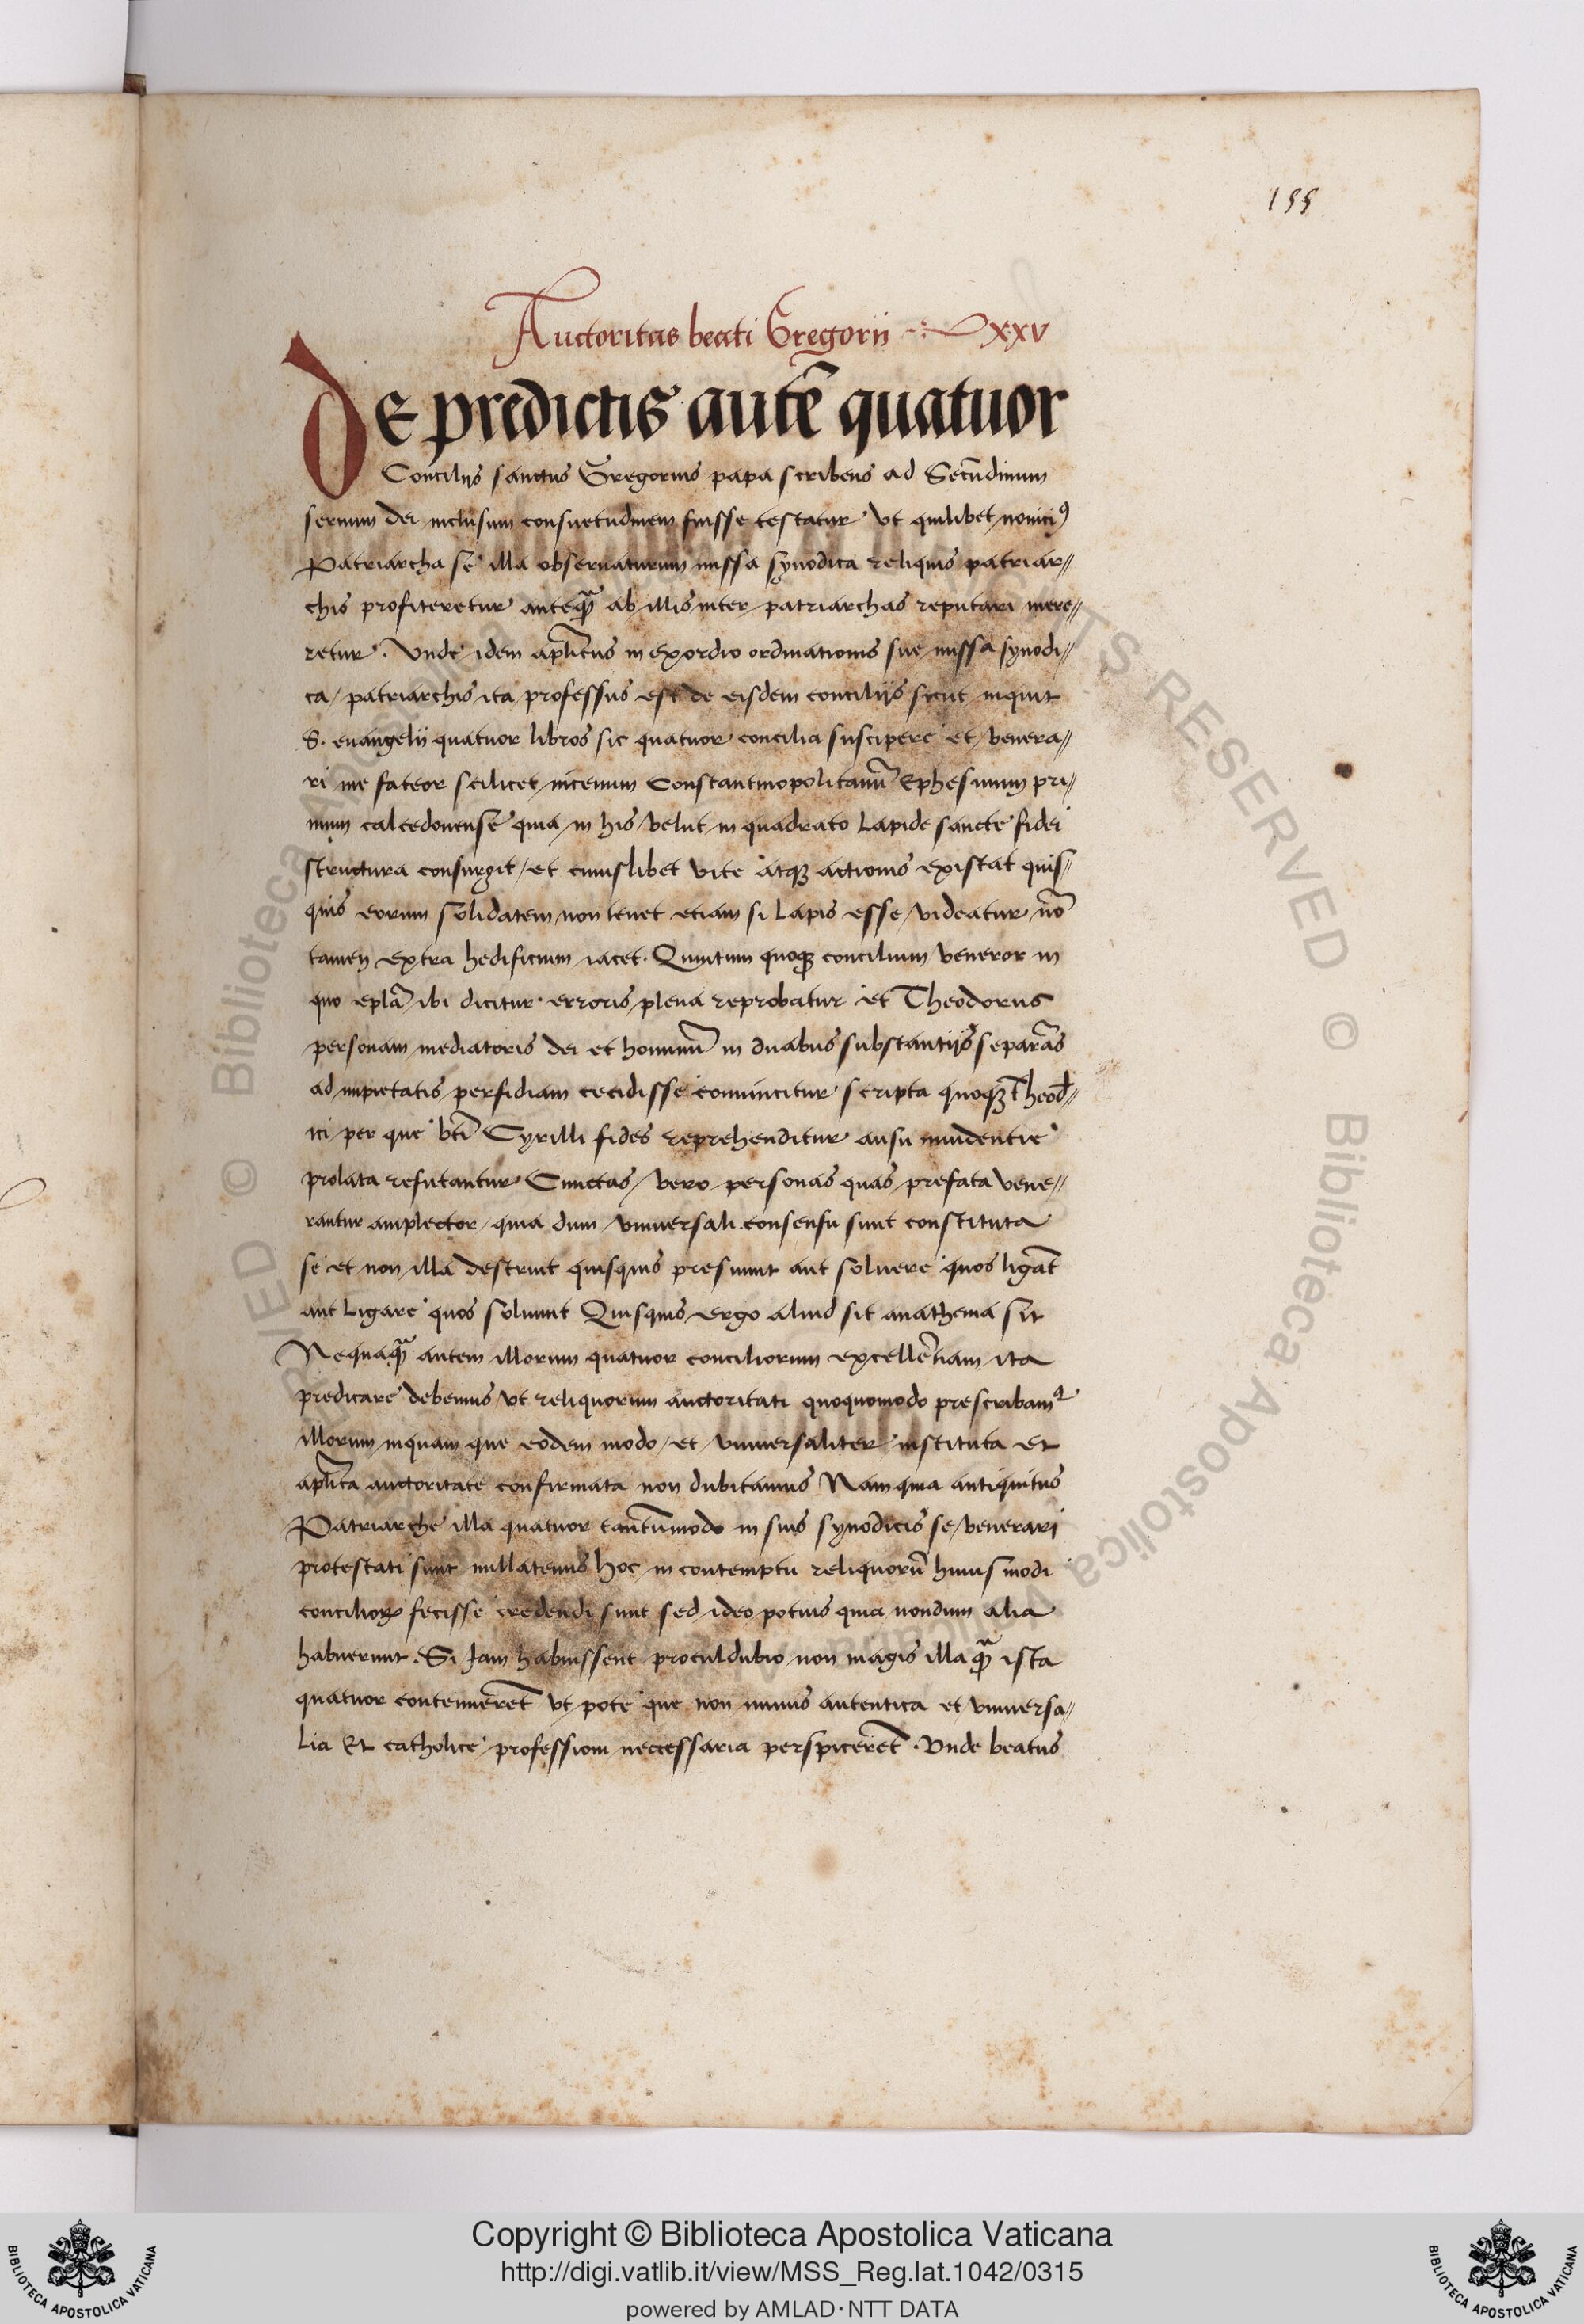 155
Auctoritas beati Gregorii xxv
De predictis autē quatuor
Conciliis sanctus Gregorius papa scribens ad Secūdinum
seruum dei inclusum consuetudinem fuisse testatur ut quilibet nouici⁹
Patriarcha se illa obseruaturum missa synodica reliquis patriar//
chis profiteretur anteq̄ᵃ ab illis inter patriarchas reputari mere//
retur. Vnde idem ap̄licus in exordio ordinationis sue missa synodi//
ca patriarchis ita professus est de eisdem conciliis sicut inquit
S. euangelii quatuor libros sic quatuor concilia suscipere et venera//
ri me fateor scilicet nicenum Constantinopolitanū Ephesinum pri//
mum calcedonense quia in his velut in quadrato Lapide sancte fidei
structura consurgit et cuiuslibet vite atqꝫ actionis existat quis//
quis eorum solidatem non tenet etiam si Lapis esse videatur nō
tamen extra hedificium iacet. Quintum quoqꝫ concilium veneror in
quo epl̄a ibi dicitur erroris plena reprobatur et Theodorus
personam mediatoris dei et hominū in duabus substantiis separās
ad impietatis perfidiam cecidisse conuincitur scripta quoqꝫ Theod̄//
ici per que bt̄i Cyrilli fides reprehenditur ausu imudentie
prolata refutantur Cunctas vero personas quas prefata vene//
rantur amplector quia dum vniuersali consensu sunt constituta
se et non illa destruit quisquis presumit aut soluere quos ligāt
aut Ligare quos soluunt Quisquis ergo aliud sit anathema sit
Nequaq̄ᵃ autem illorum quatuor conciliorum excellētiam ita
predicare debemus ut reliquorum auctoritati quoquomodo prescribam²
illorum inquam que eodem modo et vniuersaliter instituta et
ap̄lica auctoritate confirmata non dubitamus Nam quia antiquitus
Patriarche illa quatuor tantūmodo in suis synodicis se venerari
protestati sunt nullatenus hoc in contemptu reliquorū huiusmodi
concilioꝝ fecisse credendi sunt sed ideo potius quia nondum alia
habuerunt. Si Jam habuissent proculdubio non magis illa q̄ᵃ ista
quatuor contemnerēt ut pote que non minus autentica et vniuersa//
Lia Et catholice professioni neccessaria perspicerēt. Vnde beatus
Copyright © Biblioteca Apostolica Vaticana
http://digi.vatlib.it/view/MSS_Reg.lat.1042/0315
powered by AMLAD·NTT DATA
BIBLIOTECA APOSTOLICA VATICANA
BIBLIOTECA APOSTOLICA VATICANA